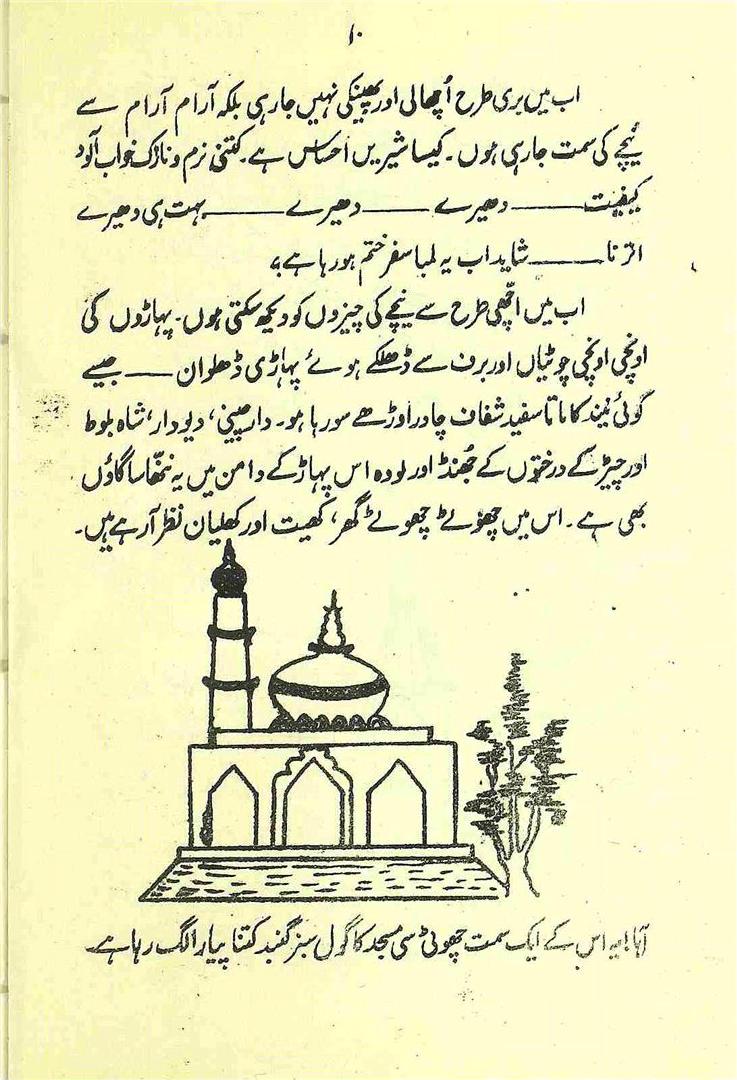 ۱۰
اب میں بری طرح اُچھالی اور پھینکی نہیں جا رہی بلکہ آرام آرام سے
نیچے کی سمت جا رہی ہوں۔ کیسا شیریں احساس ہے۔ کتنی نرم و نازک خواب آلود
کیفیت ——— دھیرے ——— دھیرے ——— بہت ہی دھیرے
اترنا ——— شاید اب یہ لمبا سفر ختم ہو رہا ہے،
اب میں اچھی طرح سے نیچے کی چیزوں کو دیکھ سکتی ہوں۔ پہاڑوں کی
اونچی اونچی چوٹیاں اور برف سے ڈھکے ہوئے پہاڑی ڈھلوان —— جیسے
کوئی نیند کا ماتا سفید شفاف چادر اوڑھے سو رہا ہو۔ دار چینی، دیودار، شاہ بلوط
اور چیڑ کے درختوں کے جھُنڈ اور لو وہ اس پہاڑ کے دامن میں یہ ننھّا سا گاؤں
بھی ہے۔ اس میں چھوٹے چھوٹے گھر، کھیت اور کھلیان نظر آ رہے ہیں۔
آہا! یہ اس کے ایک سمت چھوٹی سی مسجد کا گول سبز گنبد کتنا پیارا لگ رہا ہے۔